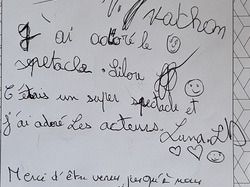 Nathan
J'ai adoré le
spetacle. Lilou
C'étais un super spectacle et
j'ai adoré Les acteurs. Luna.LB
Merci d'être venus jusqu'à nous